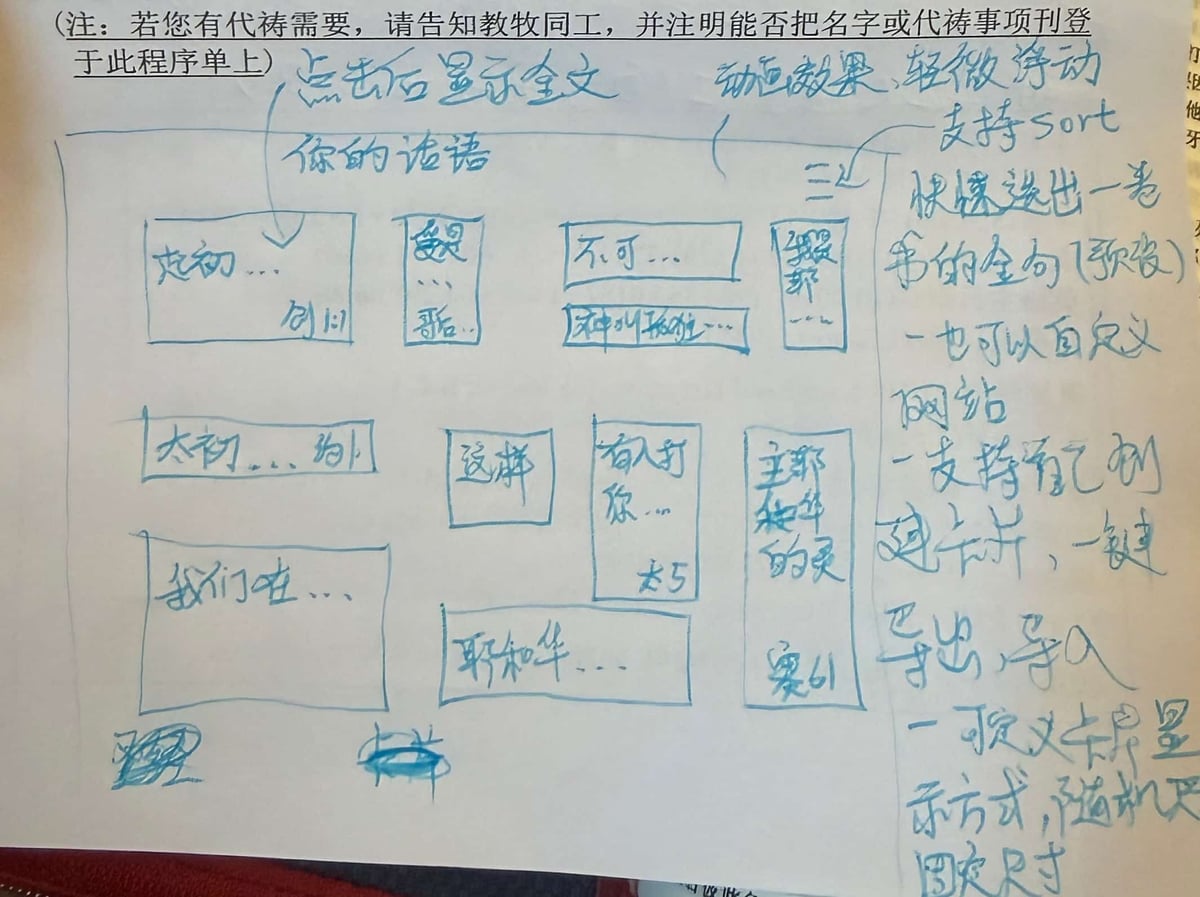 (注：若您有代祷需要，请告知教牧同工，并注明能否把名字或代祷事项刊登
于此程序单上)
点击后显示全文
动画效果、轻微浮动
支持sort
你的话语
快速选出一卷
书的金句(预设)
一也可以自定义
网站
一支持自己创
建卡片，一键
导出，导入
一可定义卡片显
示方式，随机
固定尺寸
起初...
创1:1
爱是
...
哥后..
不可...
神叫孤独...
耶
....
太初...约1
这样
有人打
你...
太5
主耶
和华
的灵
赛61
我们在...
耶和华...